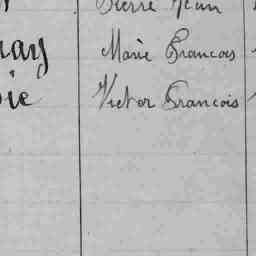 Pierre Jean
nay Marie Francois
oie Victor Francois